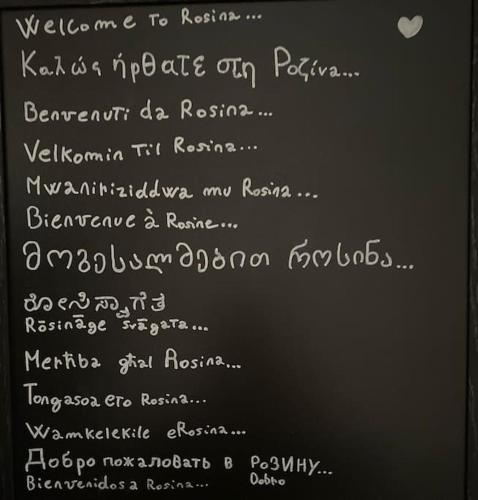 Welcome To Rosina...
Καλώς ήρθατε στη Ροζίνα...
Benvenuti da Rosina...
Velkomin Til Rosina...
Mwaniriziddwa mu Rosina...
Bienvenue à Rosine...
მოგესალმებით როსინა...
Rōsināge svāgata...
Merħba għal Rosina...
Tongasoa eto Rosina...
Wamkelekile eRosina...
Добро пожаловать в РОЗИНУ...
Dobro
Bienvenidos a Rosina...